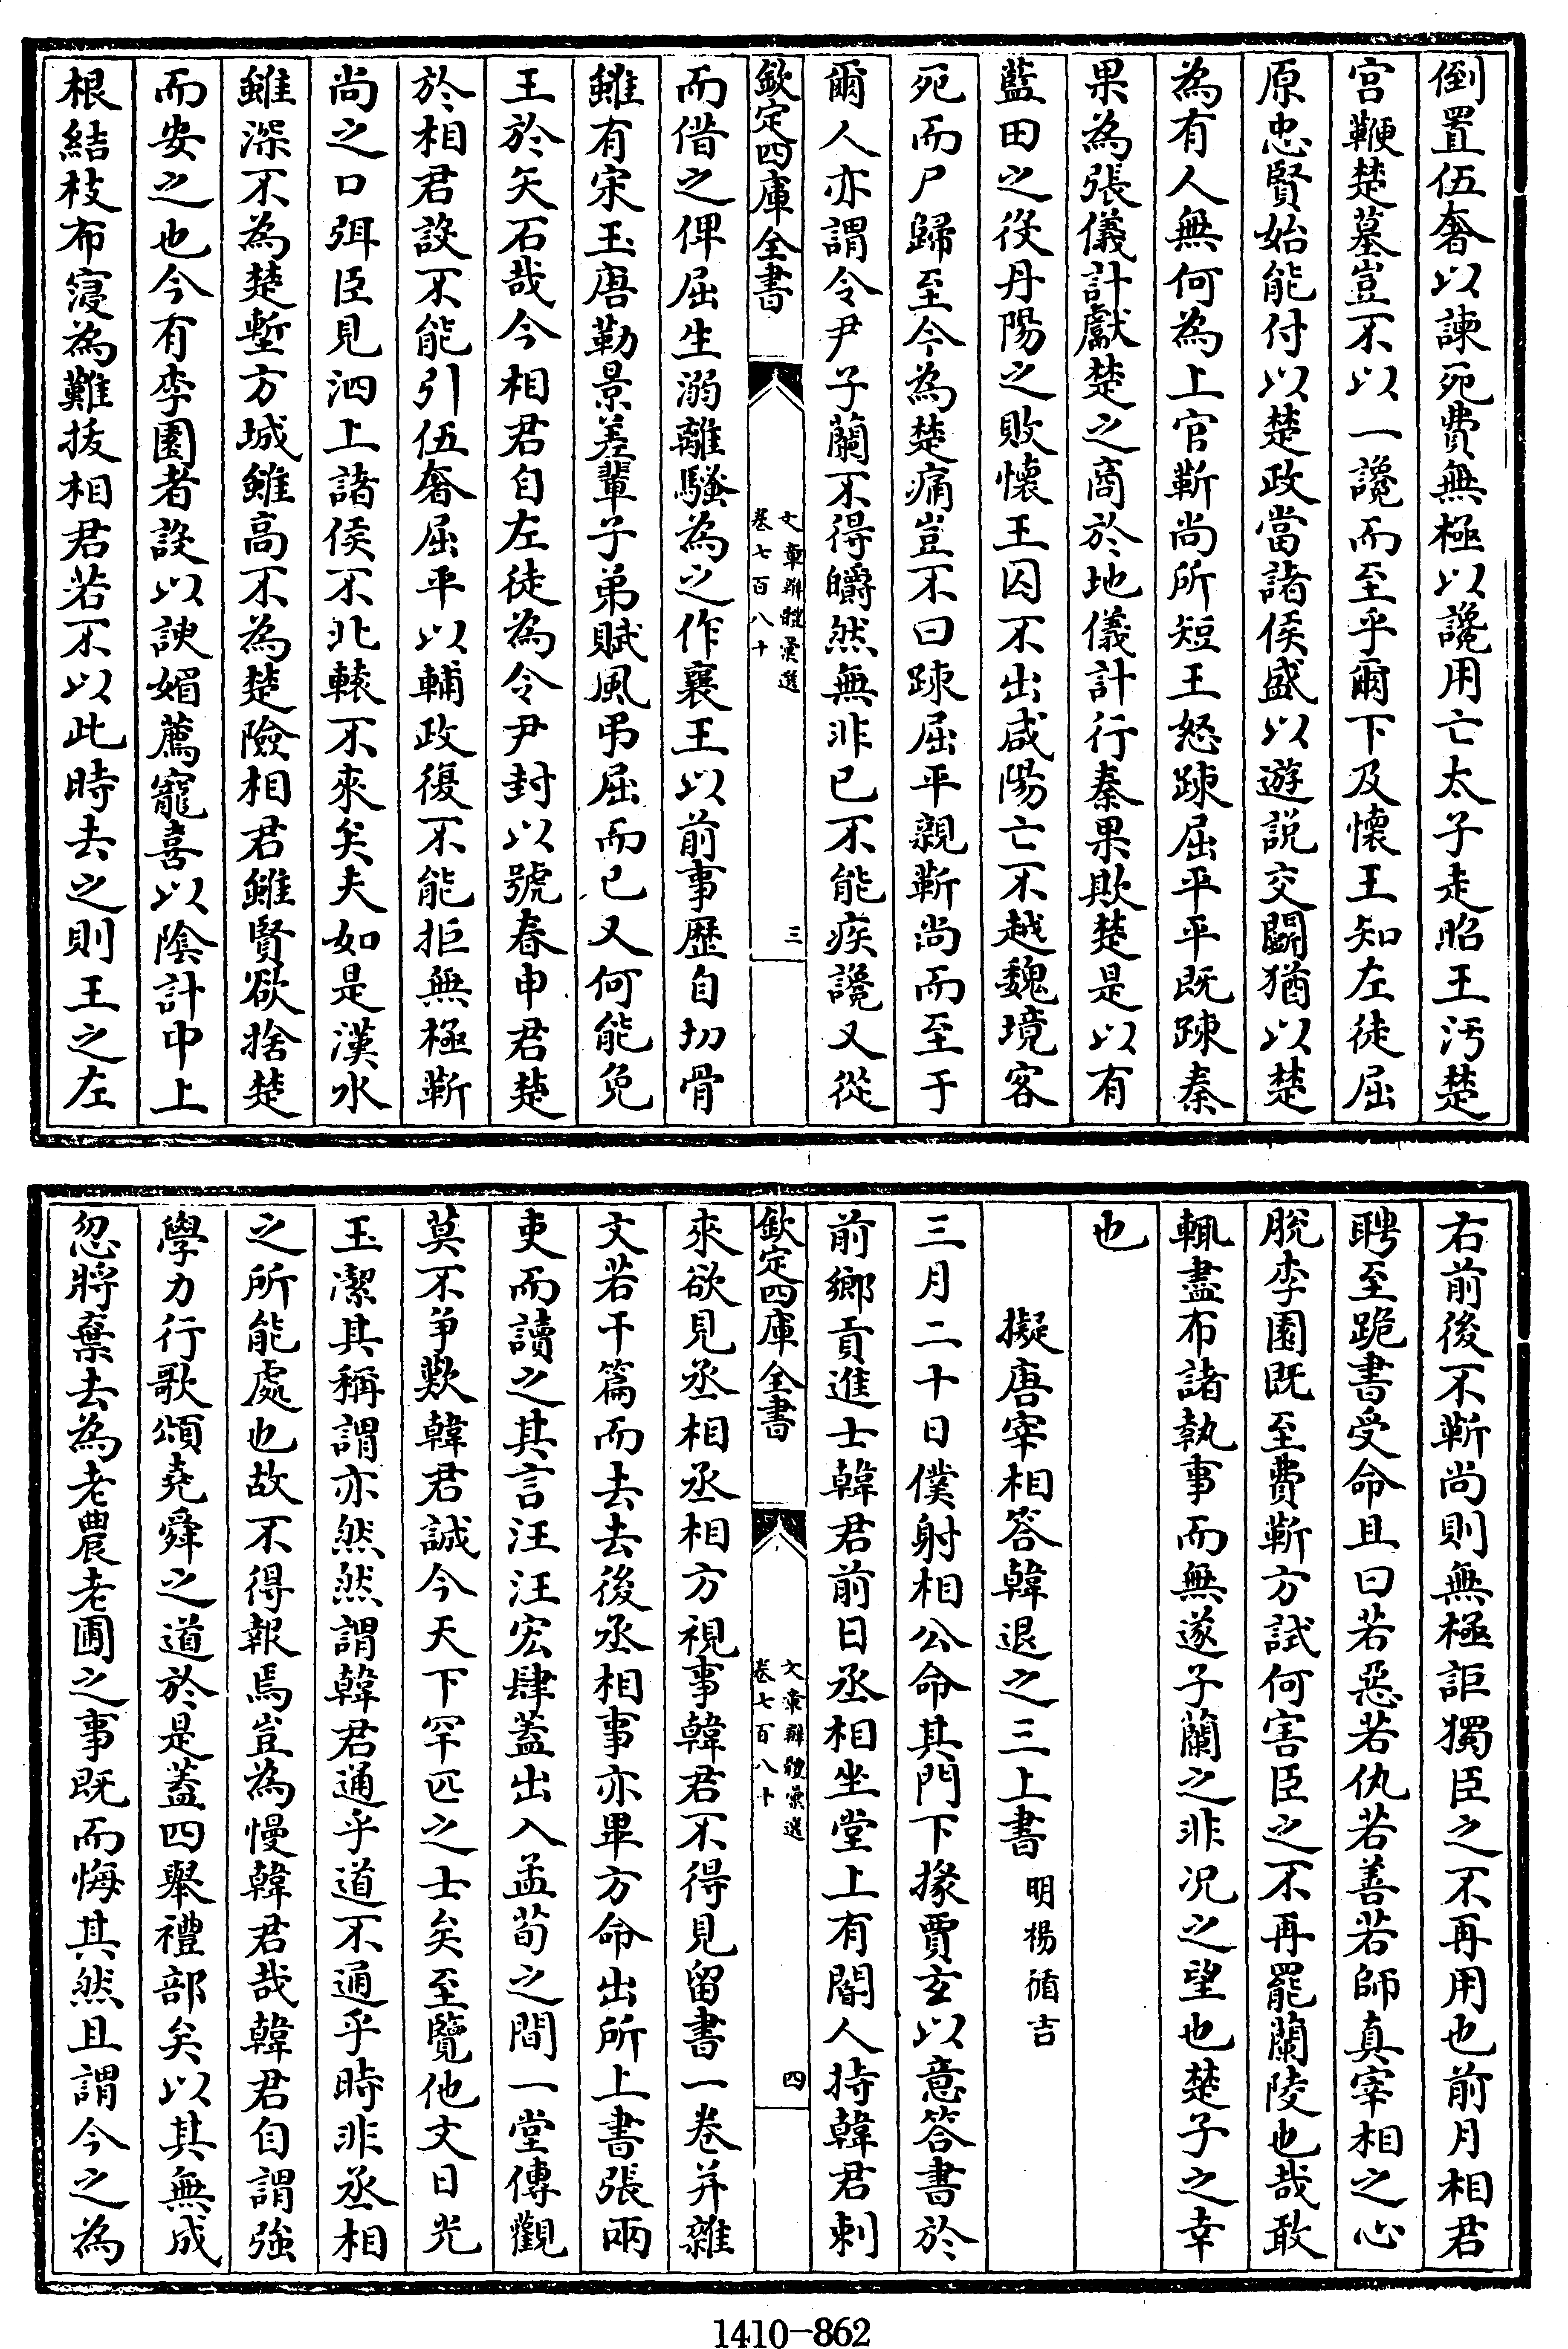 倒置伍奢以諫死費無極以讒用亡太子走昭王汚楚
宫鞭楚墓豈不以一讒而至乎爾下及懷王知左徒屈
原忠賢始能付以楚政當諸侯盛以遊説交鬬猶以楚
為有人無何為上官靳尚所短王怒踈屈平平既踈秦
果為張儀計獻楚之商於地儀計行秦果欺楚是以有
藍田之役丹陽之敗懷王囚不出咸陽亡不越魏境客
死而尸歸至今為楚痛豈不曰踈屈平親靳尚而至于
爾人亦謂令尹子蘭不得皭然無非已不能疾讒又從
欽定四庫全書
文章辨體彚選
卷七百八十
三
而借之俾屈生溺離騷為之作襄王以前事歴自切骨
雖有宋玉唐勒景差輩子弟賦風弔屈而已又何能免
王於矢石哉今相君自左徒為令尹封以號春申君楚
於相君設不能引伍奢屈平以輔政復不能拒無極靳
尚之口弭臣見泗上諸侯不北轅不來矣夫如是漢水
雖深不為楚塹方城雖高不為楚險相君雖賢欲捨楚
而安之也今有李園者設以諛媚薦寵喜以陰計中上
根結枝布寖為難拔相君若不以此時去之則王之左
右前後不靳尚則無極詎獨臣之不再用也前月相君
聘至跪書受命且曰若惡若仇若善若師真宰相之心
脫李園既至費靳方試何害臣之不再罷蘭陵也哉敢
輒盡布諸執事而無遂子蘭之非况之望也楚子之幸
也
擬唐宰相答韓退之三上書 明楊循吉
三月二十日僕射相公命其門下掾賈玄以意答書於
前鄉貢進士韓君前日丞相坐堂上有閽人持韓君刺
欽定四庫全書
文章辨體彚選
卷七百八十
四
來欲見丞相丞相方視事韓君不得見留書一巻并雜
文若干篇而去去後丞相事亦畢方命出所上書張兩
吏而讀之其言汪汪宏肆蓋出入孟荀之間一堂傳觀
莫不爭歎韓君誠今天下罕匹之士矣至覽他文日光
玉潔其稱謂亦然然謂韓君通乎道不通乎時非丞相
之所能處也故不得報焉豈為慢韓君哉韓君自謂強
學力行歌頌堯舜之道於是蓋四舉禮部矣以其無成
忽將棄去為老農老圃之事既而悔其然且謂今之為
1410-862